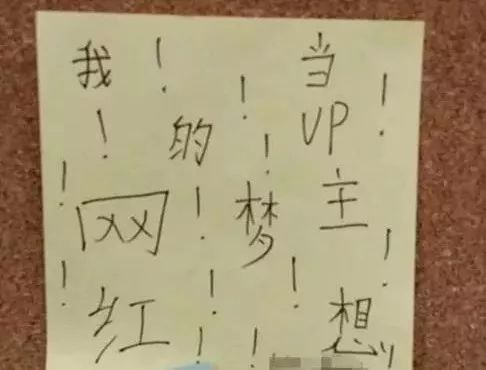 我 ! ! 当
! 的 ! ! UP !
! 网 ! 梦 主 !
! 红 ! ! 想
! !